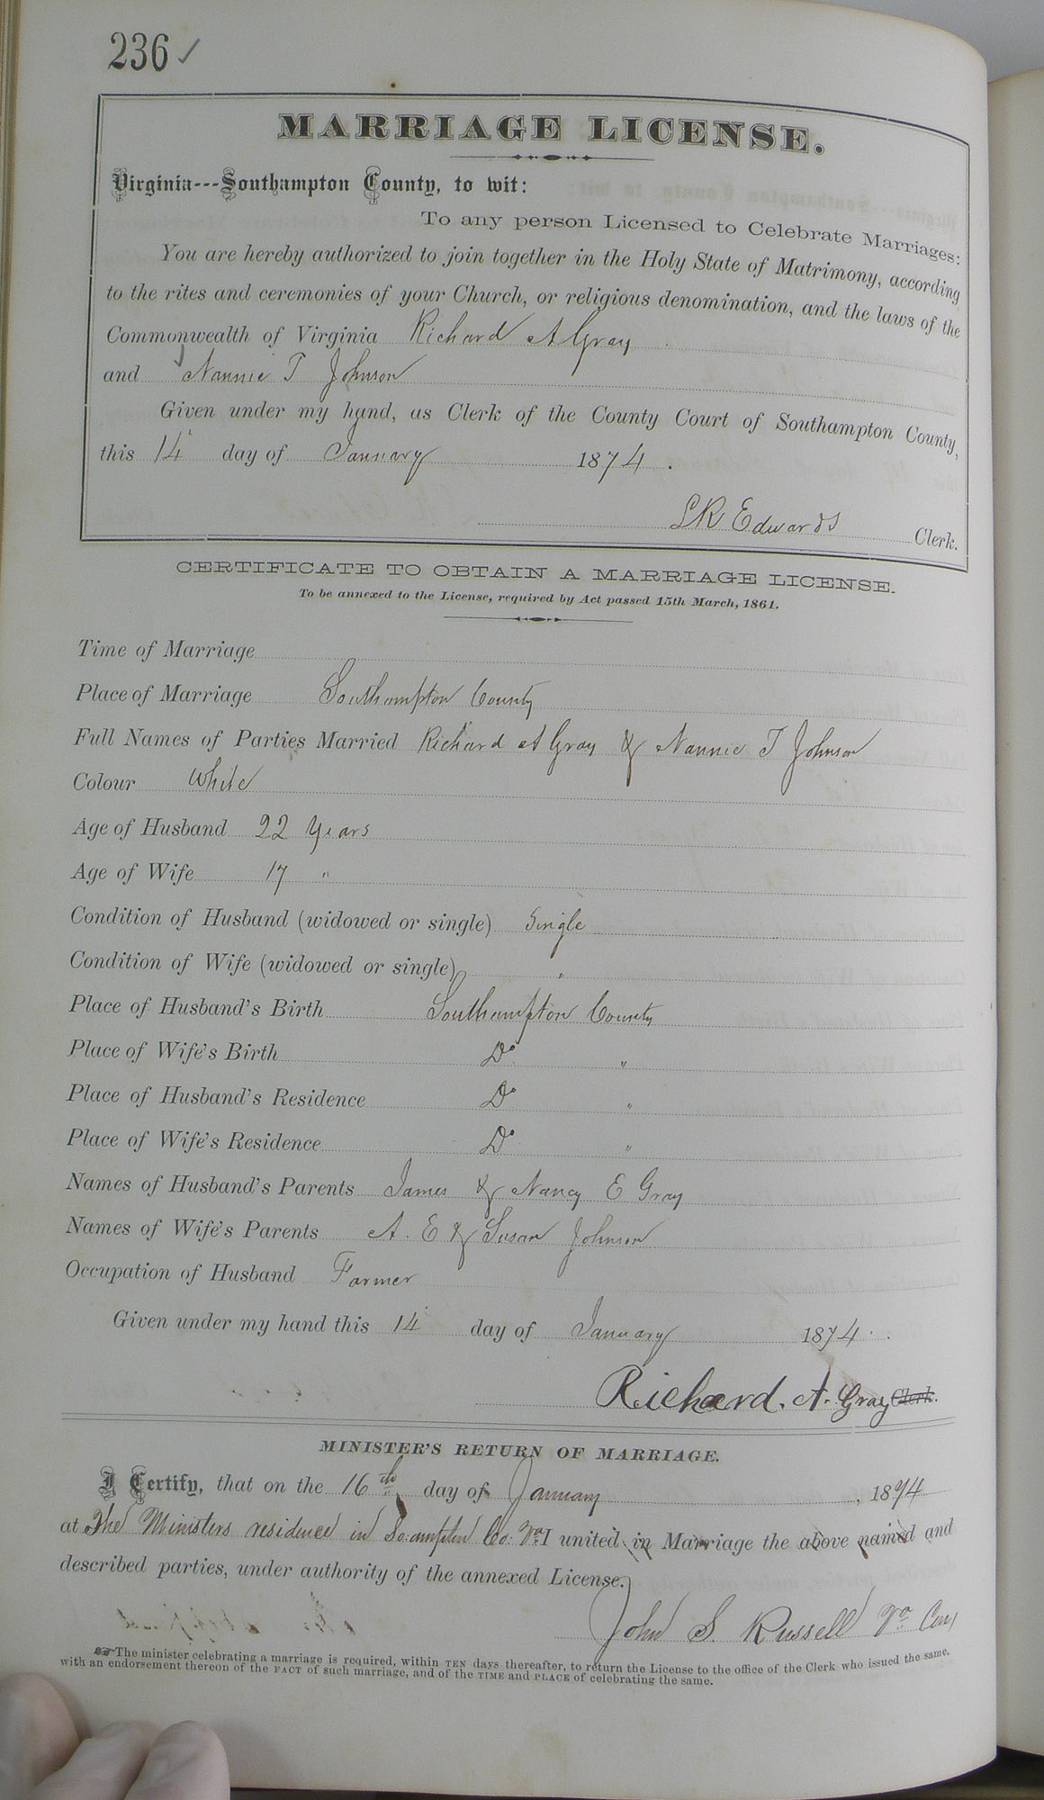 236 ✓
MARRIAGE LICENSE.
Virginia---Southampton County, to wit:
To any person Licensed to Celebrate Marriages:
You are hereby authorized to join together in the Holy State of Matrimony, according
to the rites and ceremonies of your Church, or religious denomination, and the laws of the
Commonwealth of Virginia Richard A Gray
and Nannie T Johnson
Given under my hand, as Clerk of the County Court of Southampton County,
this 14 day of January 1874.
L R Edwards Clerk.
CERTIFICATE TO OBTAIN A MARRIAGE LICENSE.
To be annexed to the License, required by Act passed 15th March, 1861.
Time of Marriage
Place of Marriage Southampton County
Full Names of Parties Married Richard A Gray & Nannie T Johnson
Colour White
Age of Husband 22 Years
Age of Wife 17 "
Condition of Husband (widowed or single) Single
Condition of Wife (widowed or single) "
Place of Husband's Birth Southampton County
Place of Wife's Birth Do "
Place of Husband's Residence Do "
Place of Wife's Residence Do "
Names of Husband's Parents James & Nancy E Gray
Names of Wife's Parents A. E & Susan Johnson
Occupation of Husband Farmer
Given under my hand this 14 day of January 1874.
Richard. A. Gray Clerk.
MINISTER'S RETURN OF MARRIAGE.
I Certify, that on the 16th day of January, 1874
at The Ministers residence in So:ampton Co: Va. I united in Marriage the above named and
described parties, under authority of the annexed License.
John S. Russell Va Con
The minister celebrating a marriage is required, within TEN days thereafter, to return the License to the office of the Clerk who issued the same,
with an endorsement thereon of the FACT of such marriage, and of the TIME and PLACE of celebrating the same.